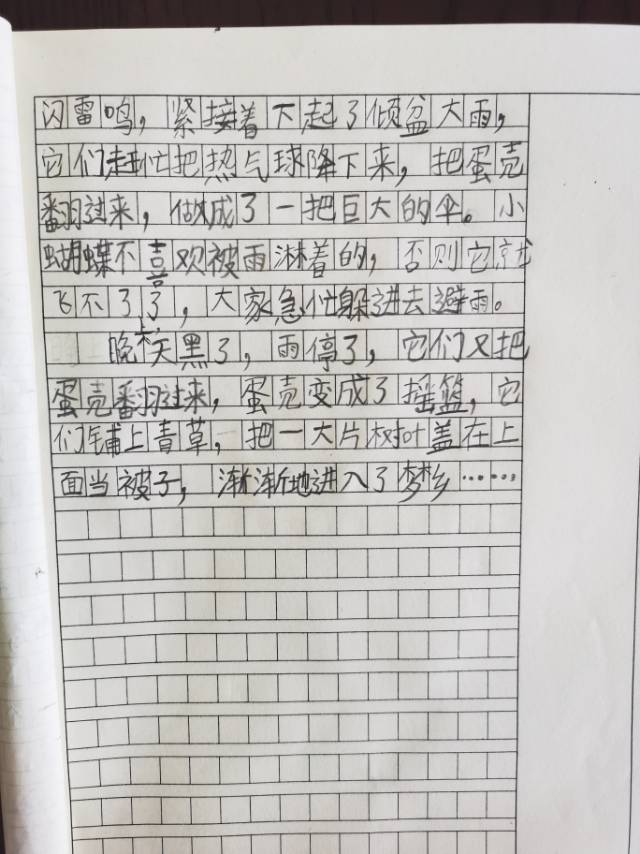 闪雷鸣，紧接着下起了倾盆大雨，
它们赶忙把热气球降下来，把蛋壳
翻过来，做成了一把巨大的伞。小
蝴蝶不喜欢被雨淋着的，否则它就
飞不了了，大家急忙躲进去避雨。
晚上，天黑了，雨停了，它们又把
蛋壳翻过来，蛋壳变成了摇篮，它
们铺上青草，把一大片树叶盖在上
面当被子，渐渐地进入了梦乡……